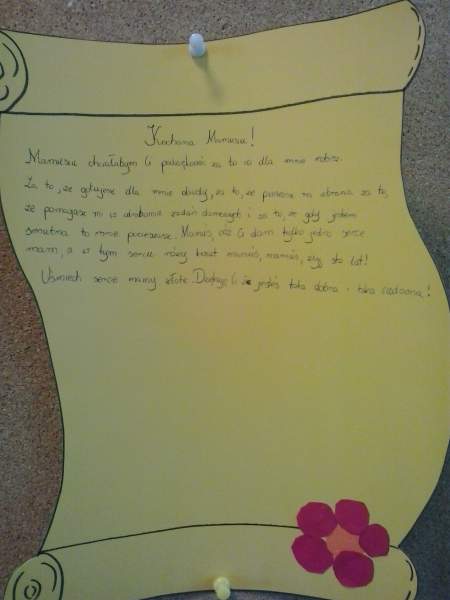 Kochana Mamusiu!
Mamusiu chciałabym Ci podziękować za to co dla mnie robisz.
Za to, że gotujesz dla mnie obiady, za to, że pierzesz mi ubrania za to,
że pomagasz mi w odrabianiu zadań domowych i za to, że gdy jestem
smutna to mnie pocieszasz. Mamuś, cóż Ci dam tylko jedno serce
mam, a w tym sercu róży kwiat mamuś, mamuś, żyj sto lat!
Uśmiech serce mamy złote. Dziękuję Ci że jesteś taka dobra i taka cudowna!